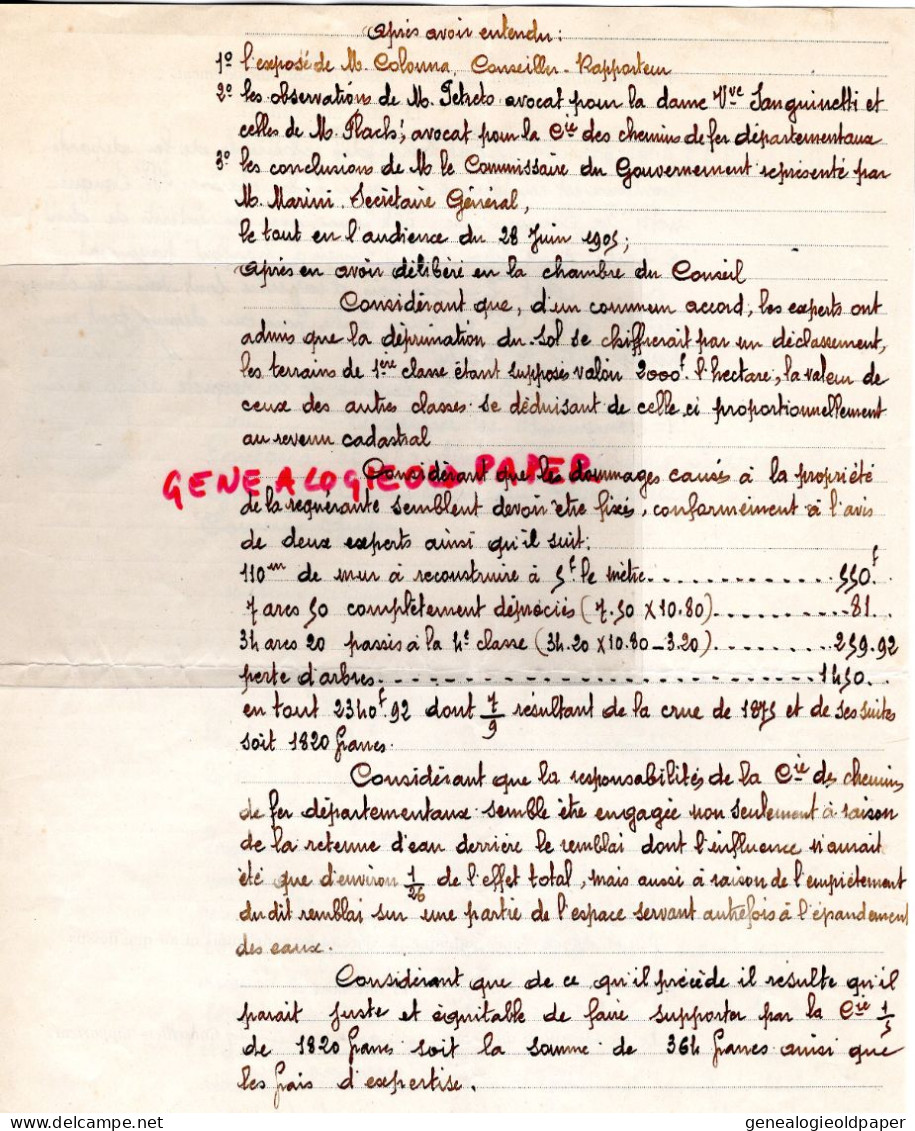 Après avoir entendu:
1º l'exposé de M. Colonna, Conseiller-Rapporteur
2º les observations de M. Petreto avocat pour la dame Vve Sanguinetti et
celles de M. Flach, avocat pour la Cie des chemins de fer départementaux
3º les conclusions de M le Commissaire du Gouvernement représenté par
M. Marini. Secrétaire Général,
le tout en l'audience du 28 Juin 1905;
Après en avoir délibéré en la chambre du Conseil
Considérant que, d'un commun accord, les experts ont
admis que la dépréciation du sol se chiffrerait par un déclassement,
les terrains de 1ère classe étant supposés valoir 2000f l'hectare, la valeur de
ceux des autres classes se déduisant de celle ci proportionnellement
au revenu cadastral
GENEALOGIE OLD PAPER
Considérant que les dommages causés à la propriété
de la requérante semblent devoir être fixés, conformément à l'avis
de deux experts ainsi qu'il suit:
110m de mur à reconstruire à 5f le mètre.............550f
7 ares 50 complètement dépréciés (7.50 X 10.80)..........81.
34 ares 20 passés à la 4e classe (34.20 X 10.80 - 3.20)........259.92
perte d'arbres..........................1450..
en tout 2340f.92 dont 7/9 résultant de la crue de 1875 et de ses suites
soit 1820 francs.
Considérant que la responsabilités de la Cie des chemins
de fer départementaux semble être engagée non seulement à raison
de la retenue d'eau derrière le remblai dont l'influence n'aurait
été que d'environ 1/26 de l'effet total, mais aussi à raison de l'empiètement
du dit remblai sur une partie de l'espace servant autrefois à l'épandement
des eaux.
Considérant que de ce qu'il précède il résulte qu'il
parait juste et équitable de faire supporter par la Cie 1/5
de 1820 francs soit la somme de 364 francs ainsi que
les frais d'expertise.
genealogieoldpaper